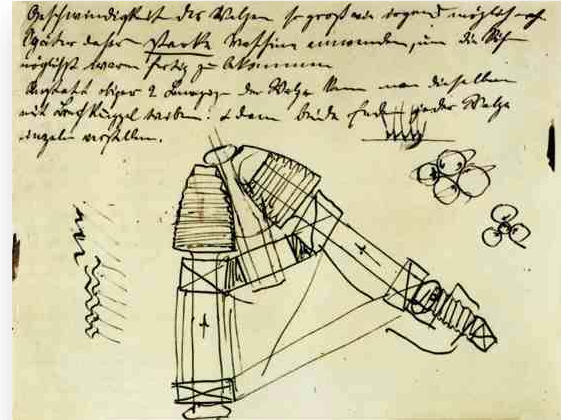 Geschwindigkeit der Walzen so groß wie irgend möglich
Später daher starke Maschine anwenden, um die
möglichst warm fertig zu bekommen
Anstatt obiger 2 der Walze kann man dieselben
mit treiben: & dann beide Enden jeder Walze
einzeln verstellen.